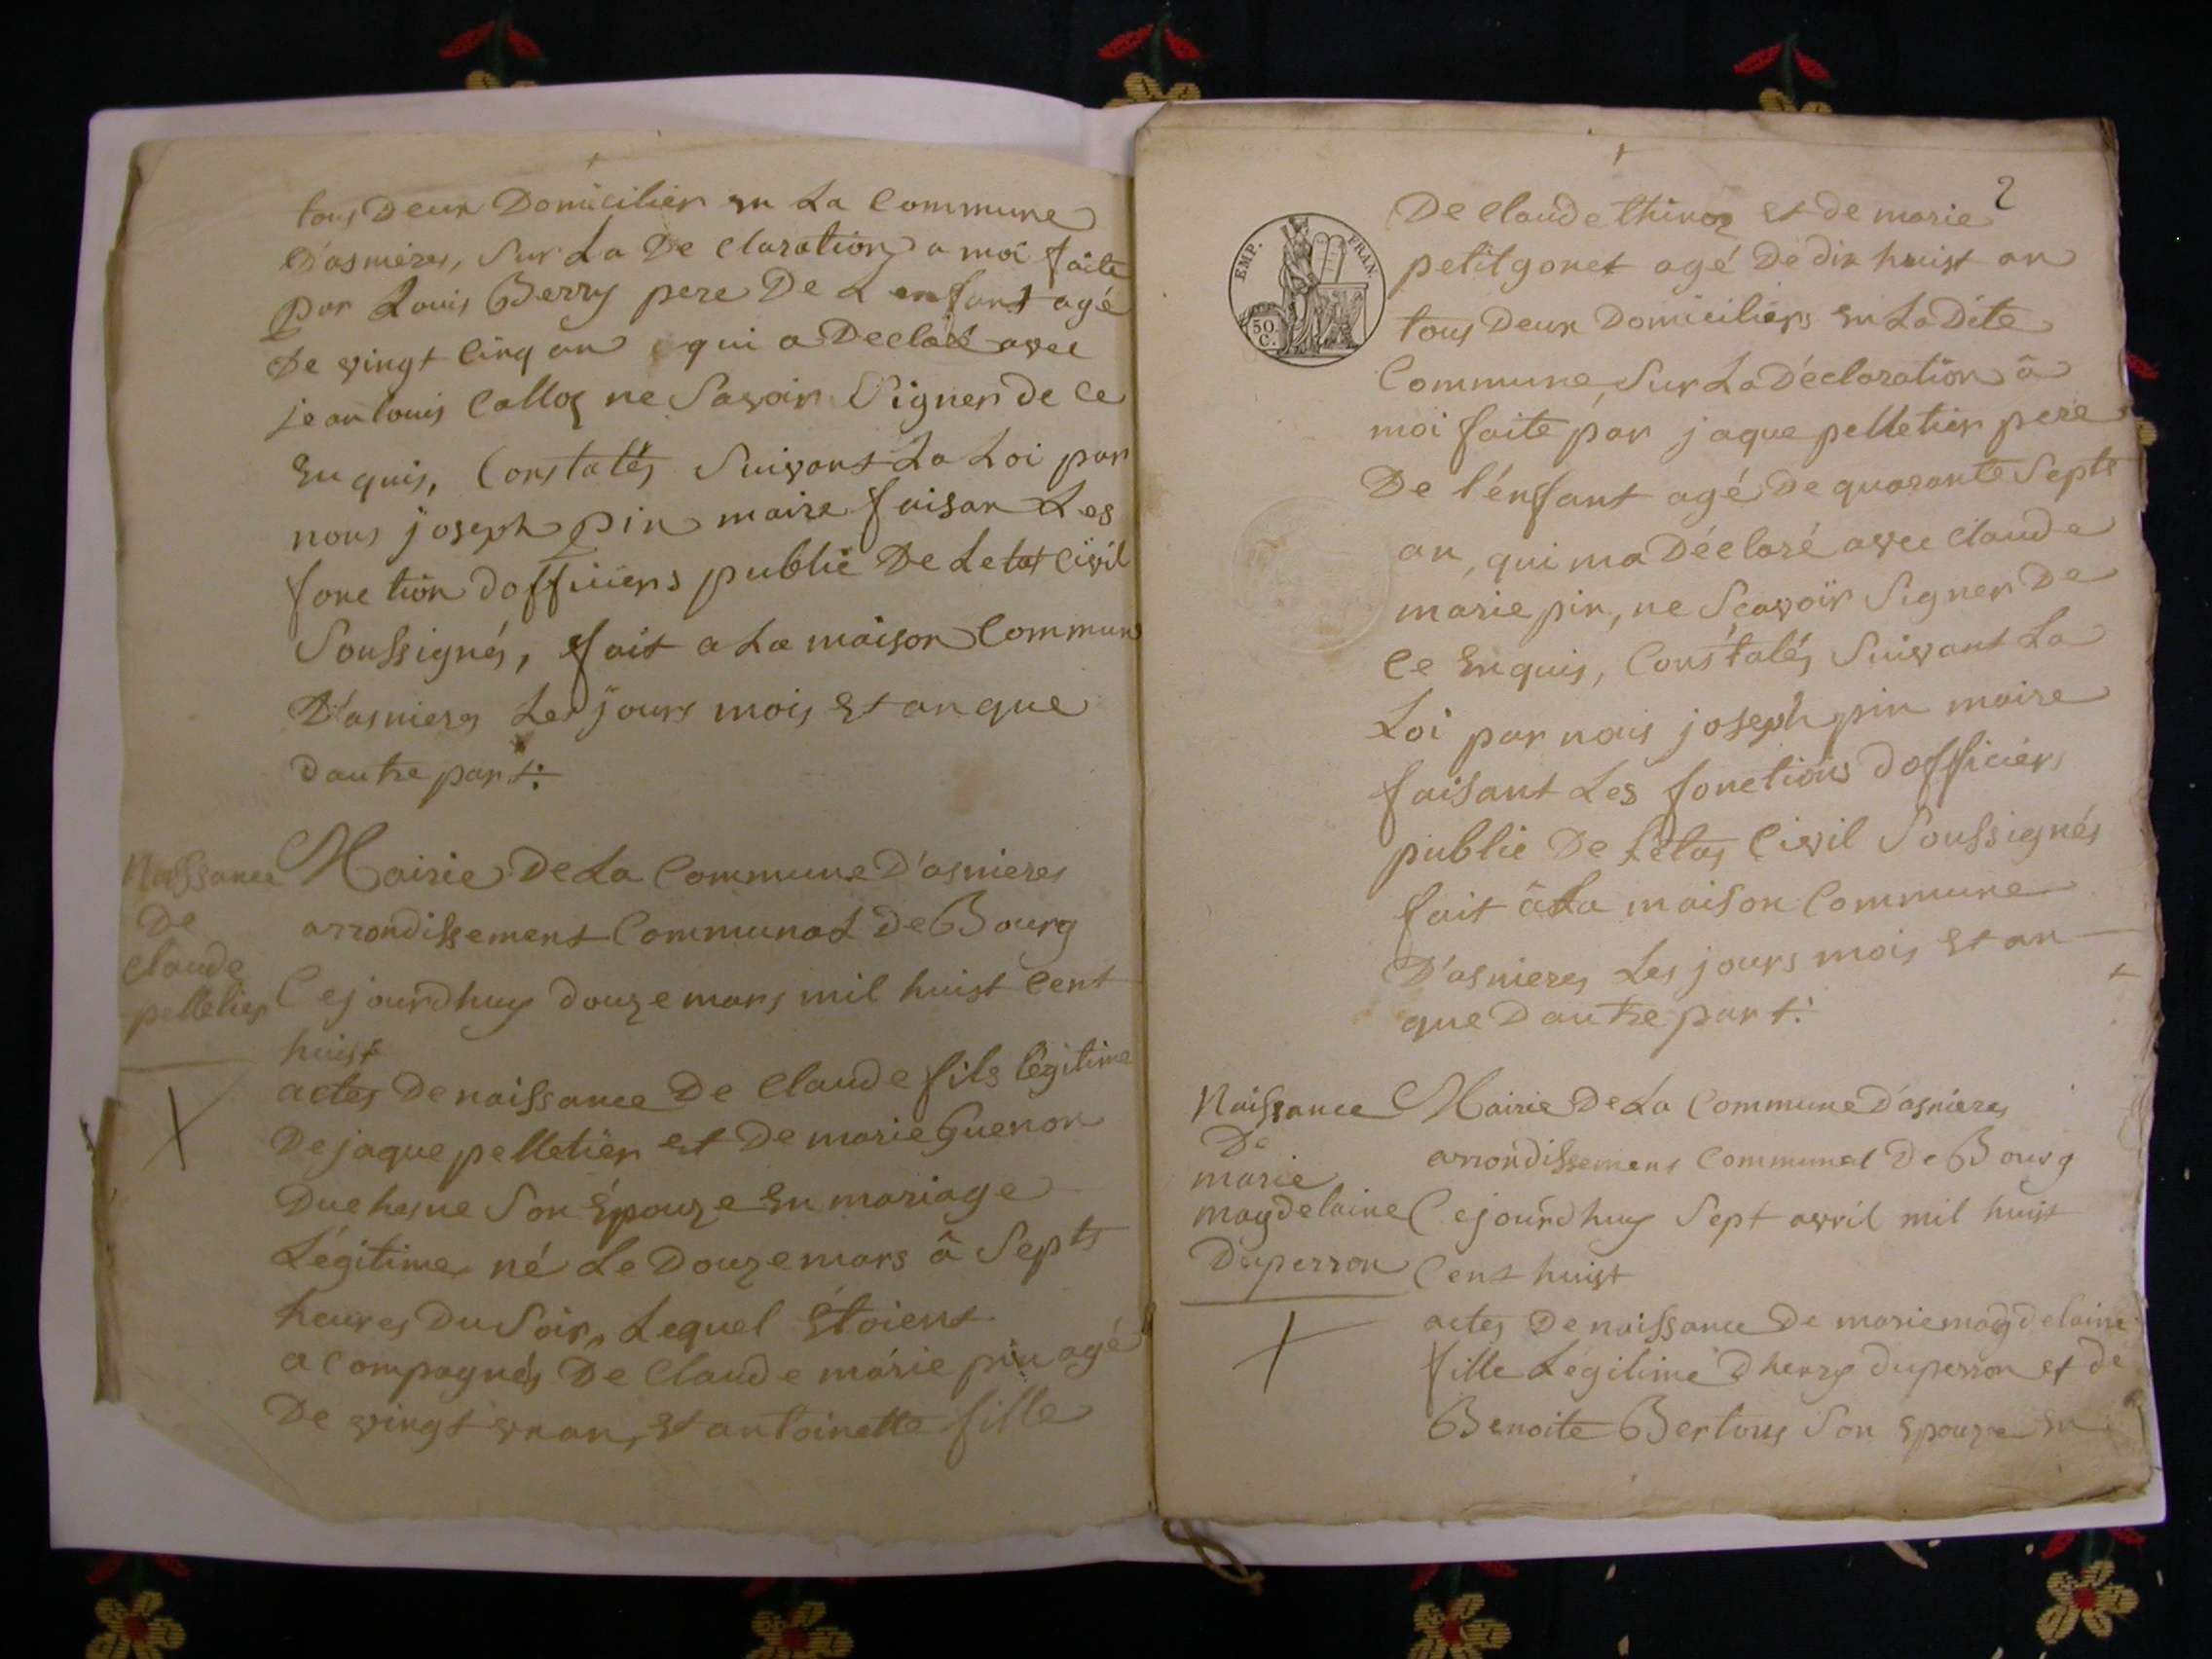 tous Deux Domicilier en La Commune
D'asnieres, Sur La De claration a moi faite
par Louis Berry pere De L enfant agé
De vingt Cinq an qui a Declaré avec
jean louis Colloz ne Savoir Signer de Ce
En quis, Constatés Suivant La Loi par
nous joseph pin maire faisan Les
fonction dofficiers public De Letat Civil
Soussignés, fait a La maison Commune
D'asnieres Les jours mois Et an que
dautre part:
Naissance
De
Claude
pelletier
Mairie De La Commune D'asnieres
arrondissement Communal De Bourg
Ce jourdhuy douze mars mil huist Cent
huist
actes De naissance De Claude fils légitime
De jaque pelletier et De marie Guenon
Duchesne Son Épouze En mariage
Légitime né Le Douze mars â Septs
heures Du Soir, Lequel Étoient
a Compagnés De Claude marie pin agé
De vingt un an, Et antoinette fille
2
EMP. FRAN.
50.
C.
De Claude Et de marie
petitgonet agé De dix huist an
tous Deux Domiciliers En La Dite
Commune, Sur La Déclaration â
moi faite par jaque pelletier pere
De l'énfant agé De quarante Septs
an, qui ma Déclaré avec Claude
marie pin, ne Sçavoir Signer De
Ce En quis, Constatés Suivant La
Loi par nous joseph pin maire
faisant Les fonctions dofficiers
public De Létat Civil Soussignés
fait â La maison Commune
D'asnieres Les jours mois Et an
que Dautre part:
Naissance
De
marie
magdelaine
Duperron
Mairie De La Commune D'asnieres
arrondissement Communal De Bourg
Ce jourdhuy Sept avril mil huist
Cent huist
actes De naissance De marie magdelaine
fille Légitime d henry duperron et de
Benoite Son Epouze En